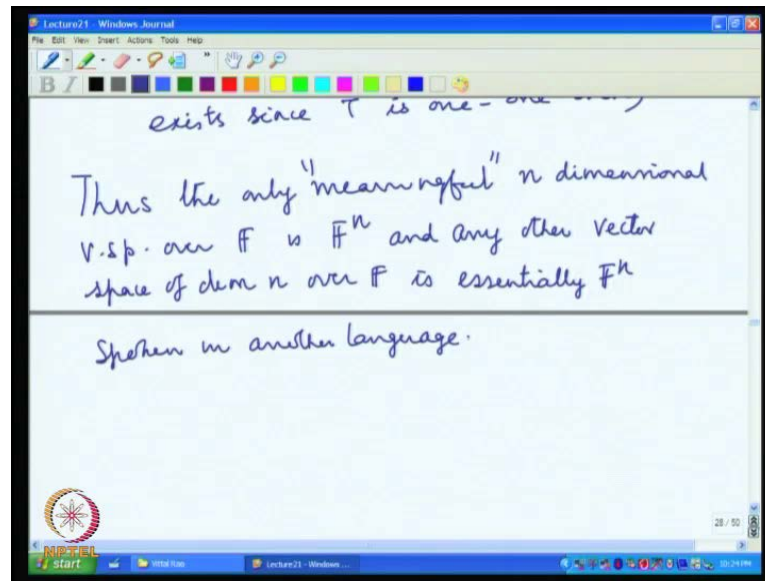 Lecture21 - Windows Journal
File Edit View Insert Actions Tools Help
B I
exists since T is one-one
Thus the only "meaningful" n dimensional
v.sp. over F is Fⁿ and any other vector
space of dim n over F is essentially Fⁿ
Spoken in another language.
28 / 50
NPTEL
start Vittal Rao Lecture21 - Windows ... 10:24 PM